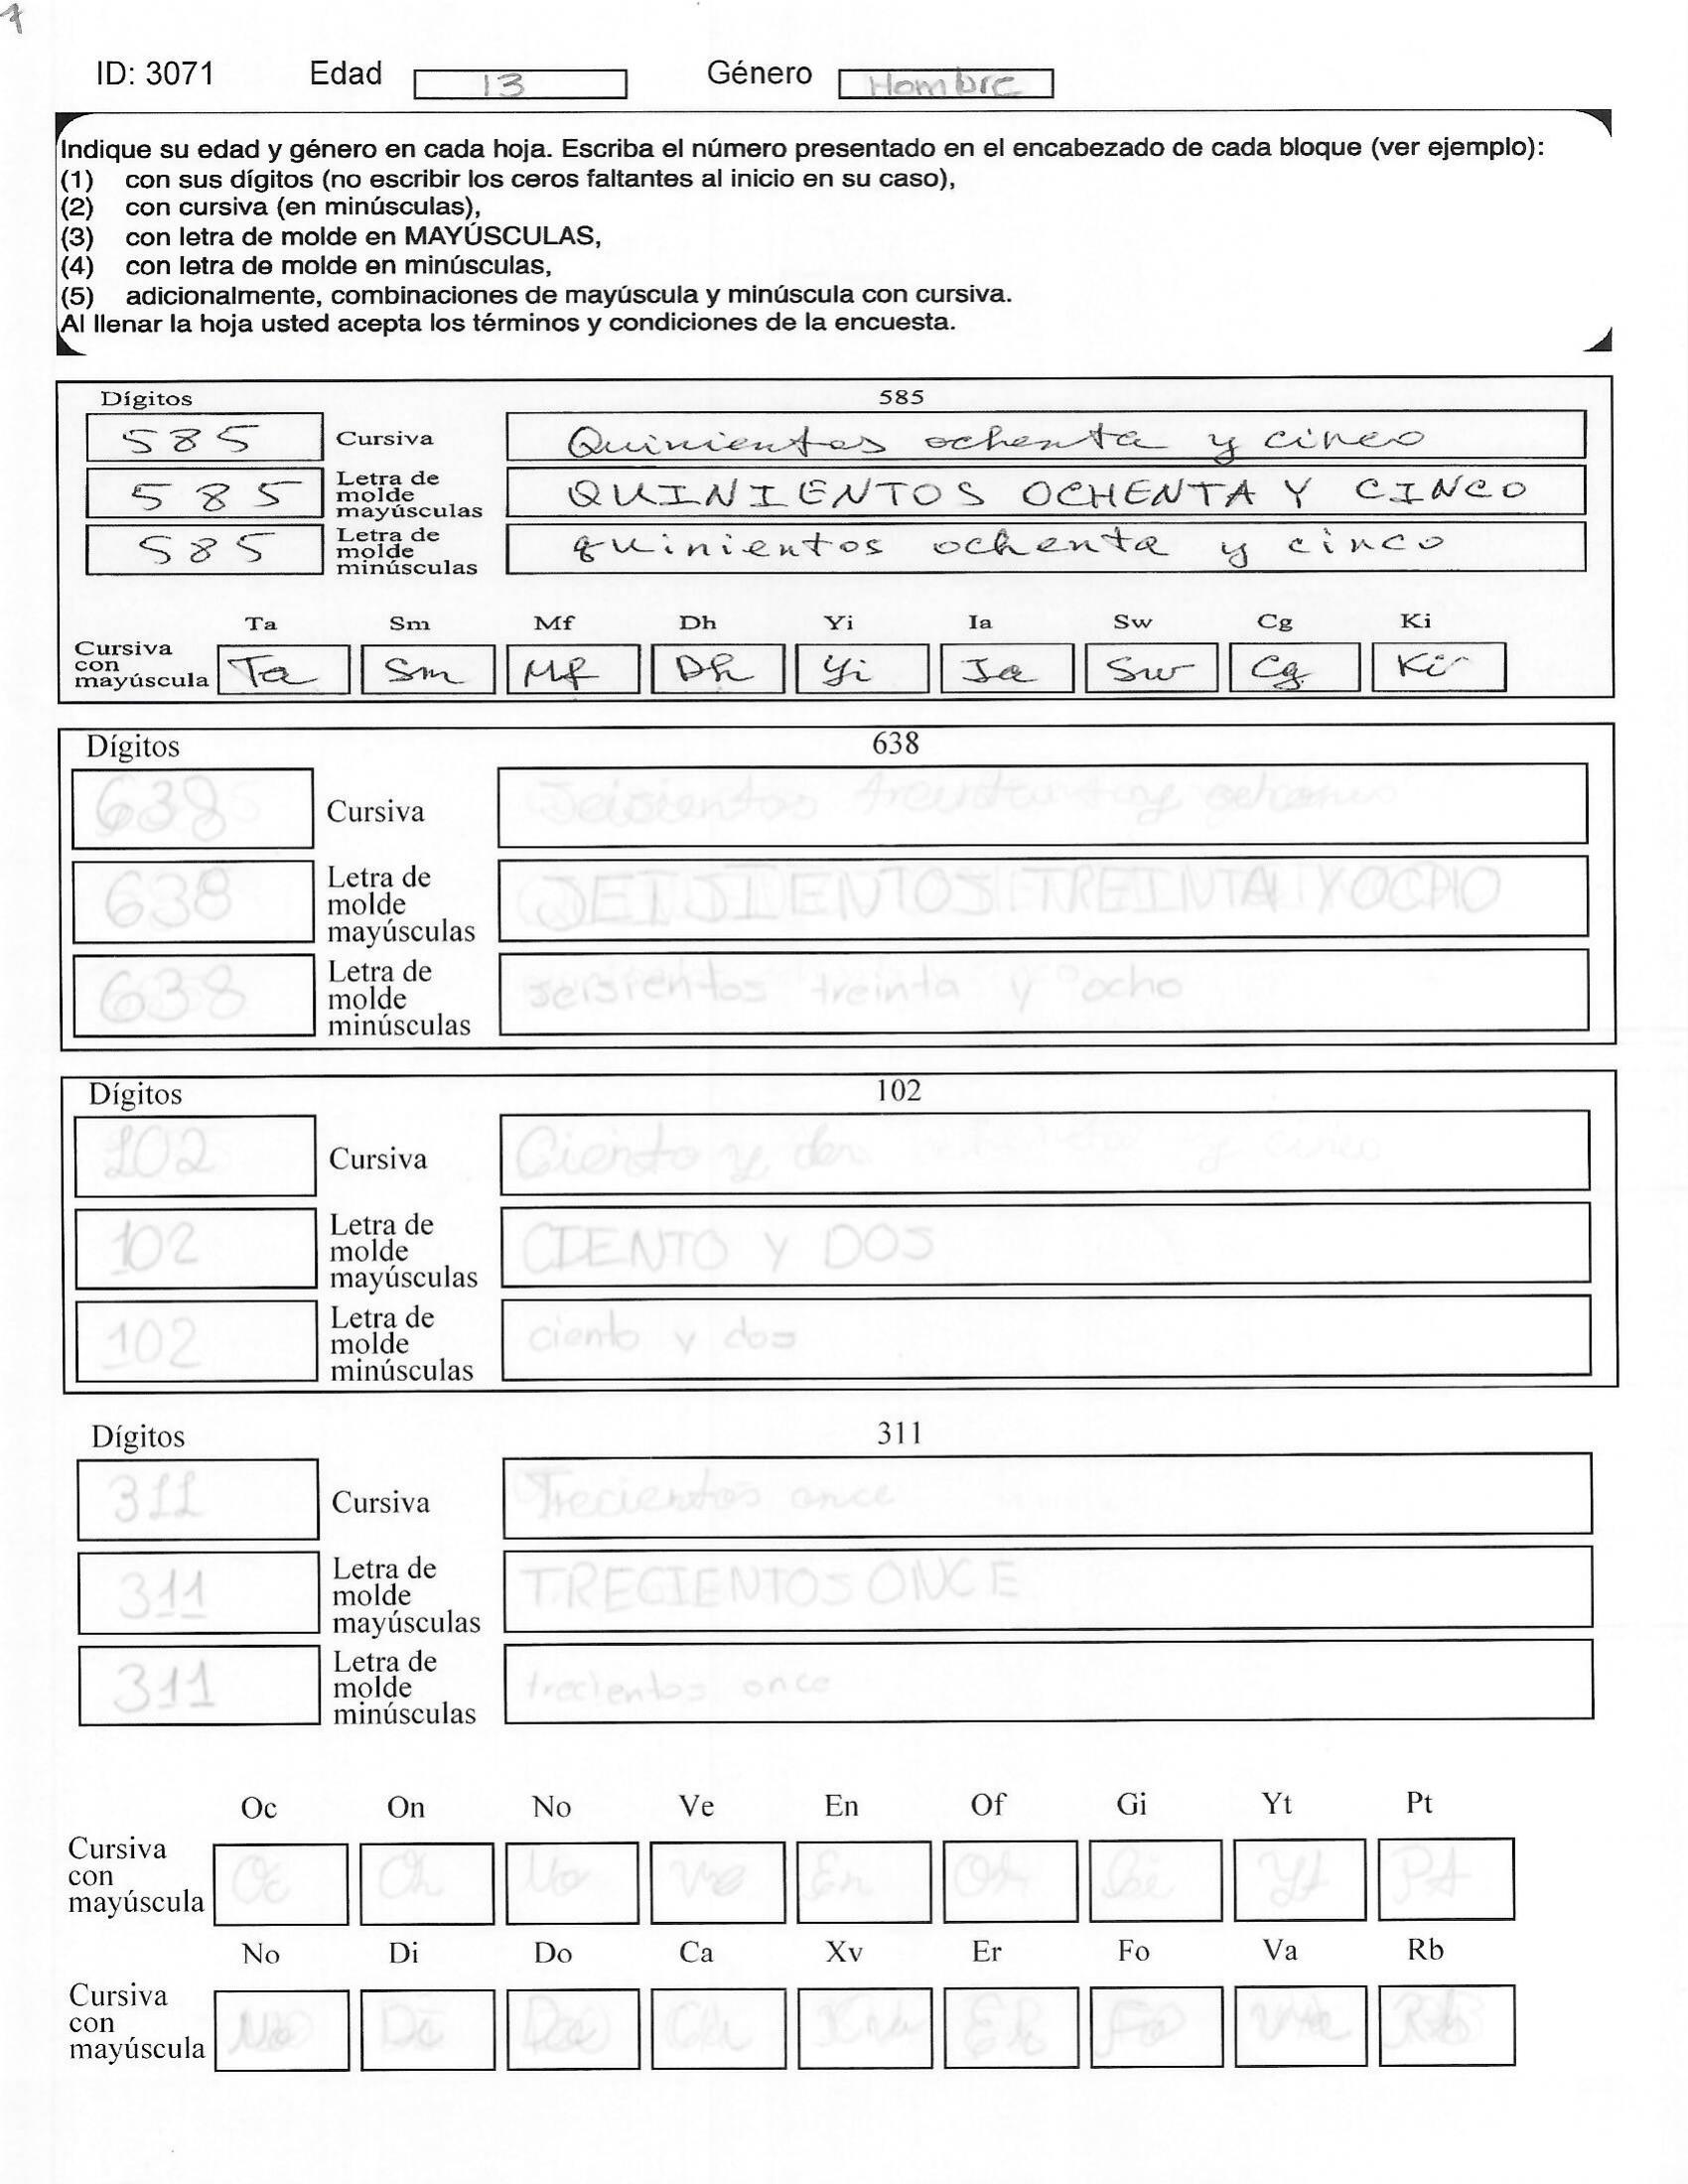 1
ID: 3071 Edad 13 Género Hombre
Indique su edad y género en cada hoja. Escriba el número presentado en el encabezado de cada bloque (ver ejemplo):
(1) con sus dígitos (no escribir los ceros faltantes al inicio en su caso),
(2) con cursiva (en minúsculas),
(3) con letra de molde en MAYÚSCULAS,
(4) con letra de molde en minúsculas,
(5) adicionalmente, combinaciones de mayúscula y minúscula con cursiva.
Al llenar la hoja usted acepta los términos y condiciones de la encuesta.
Dígitos 585
585 Cursiva Quinientos ochenta y cinco
585 Letra de molde mayúsculas QUINIENTOS OCHENTA Y CINCO
585 Letra de molde minúsculas quinientos ochenta y cinco
Ta Sm Mf Dh Yi Ia Sw Cg Ki
Cursiva con mayúscula Ta Sm Mf Dh Yi Ia Sw Cg Ki
Dígitos 638
638 Cursiva Seisientos y
638 Letra de molde mayúsculas SEISIENTOS TREINTA Y OCHO
638 Letra de molde minúsculas seisientos treinta y ocho
Dígitos 102
102 Cursiva Ciento y dos
102 Letra de molde mayúsculas CIENTO Y DOS
102 Letra de molde minúsculas ciento y dos
Dígitos 311
311 Cursiva Trecientos once
311 Letra de molde mayúsculas TRECIENTOS ONCE
311 Letra de molde minúsculas trecientos once
Oc On No Ve En Of Gi Yt Pt
Cursiva con mayúscula Oc On No Ve En Of Gi Yt Pt
No Di Do Ca Xv Er Fo Va Rb
Cursiva con mayúscula No Di Do Ca Xv Er Fo Va Rb